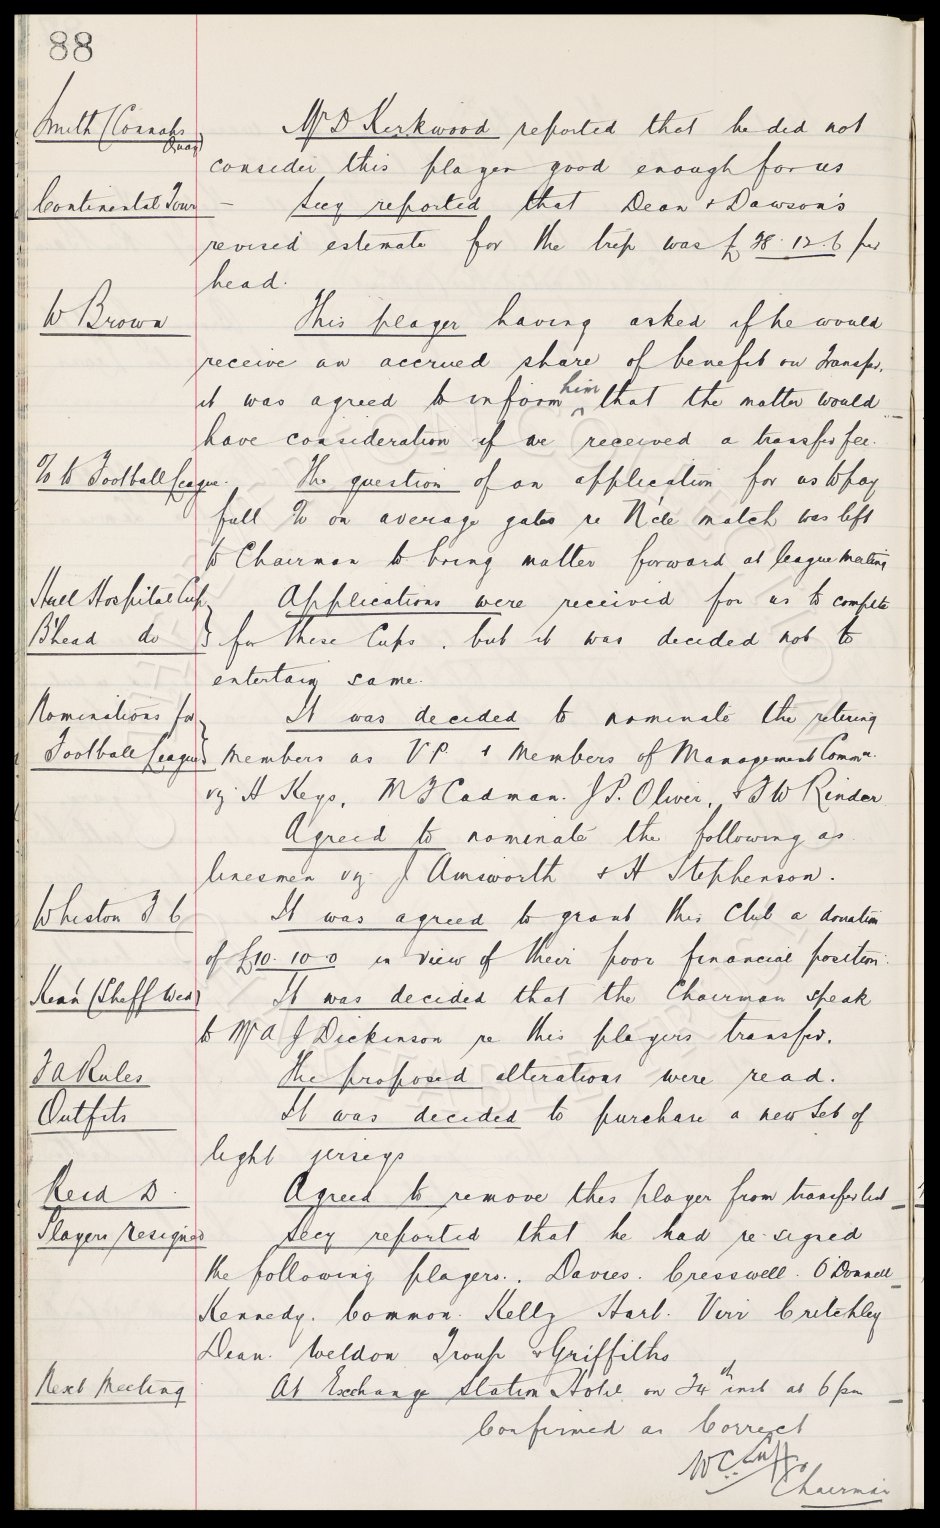 88
Smith (Connahs Quay) Mr D Kirkwood reported that he did not
consider this player good enough for us
Continental Tour - Secy reported that Dean & Dawson's
revised estimate for the trip was £ 28. 12. 6 per
head.
W Brown This player having asked if he would
receive an accrued share of benefit on Transfer,
it was agreed to inform him that the matter would
have consideration if we received a transfer fee.
% to Football League. The question of an application for us to pay
full % on average gates re N'cle match was left
to Chairman to bring matter forward at league meeting
Hull Hospital Cup Applications were received for us to compete
B'head do for these Cups. but it was decided not to
entertain same.
Nominations for It was decided to nominate the retiring
Football League members as V P & Members of Management Comm
viz H Keys, M F Cadman. J P. Oliver, & T W Rinder
Agreed to nominate the following as
linesmen viz J Ainsworth & H Stephenson.
Whiston F C It was agreed to grant this Club a donation
of £10. 10. 0 in view of their poor financial position.
Kean (Sheff Wed) It was decided that the Chairman speak
to Mr A J Dickinson re this players transfer.
F A Rules The proposed alterations were read.
Outfits It was decided to purchase a new set of
light jerseys
Reid D. Agreed to remove this player from transfer list
Players resigned Secy reported that he had re-signed
the following players.. Davies. Cresswell. O'Donnell
Kennedy. Common. Kelly Hart. Virr Critchley
Dean. Weldon Troup & Griffiths
Next Meeting At Exchange Station Hotel on 24th inst at 6 pm
Confirmed as Correct
W C Cuff
Chairman